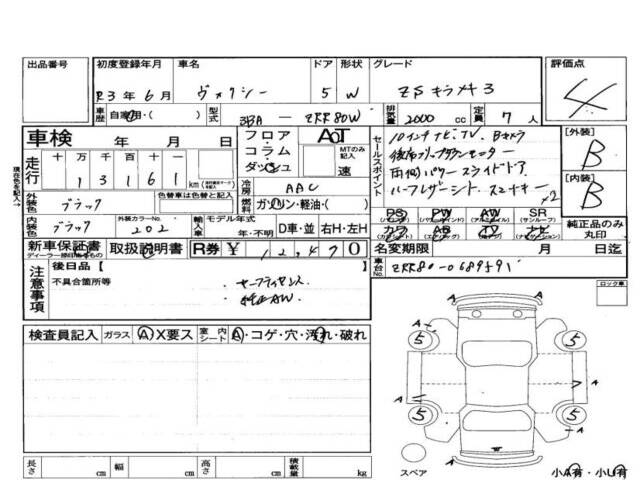 出品番号 初度登録年月 車名 ドア 形状 グレード 評価点
R3年6月 ヴォクシー 5 W ZSキラメキ3 4
車歴 自家用・( ) 型式 3BA − ZRR80W 排気量 2000 cc 定員 7 人
車検 年 月 日 フロア・コラム・ダッシュ AOT MTのみ記入 速
セールスポイント 10インチナビTV. Bカメラ
後席フリップダウンモニター
両側パワースライドドア
ハーフレザーシート スマートキー×2
[外装] B
[内装] B
走行 十万 千百十一
1 3 1 6 1 km
現車色を記入→
外装色 ブラック 色替車は色替と記入
冷房 AAC
燃料 ガソリン・軽油・( )
内装色 ブラック 外装カラーNo. 202 輸入車 モデル年式 年・不明 D車・並 右H・左H
PS PW AW SR
(パワステ) (パワーウインド) (アルミホイル) (サンルーフ)
カワ AB TV ナビ
(エアバッグ) (ナビゲーション)
純正品のみ丸印
新車保証書 取扱説明書 R券 ¥ 12,470
名変期限 月 日迄
車台No. ZRR80-0689591
注意事項 後日品【
不具合箇所等
・セーフティセンス
・純正AW
ロック車
検査員記入 ガラス A X要ス 室内シート A・コゲ・穴・汚れ・破れ
A
5 5
A A
5 5
A A
A
スペア
小A有・小U有
長さ cm 幅 cm 高さ cm 積載量 kg